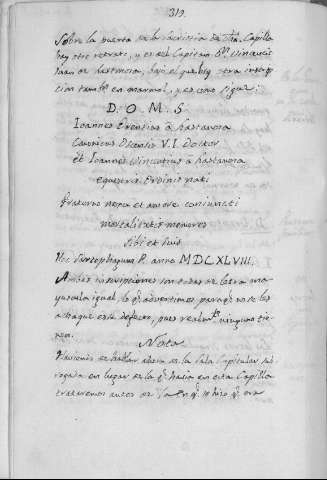 319.
Sobre la puerta de la sacristia de dha. Capilla
hay otro retrato, y es del Capitan Dn. Vincencio
Juan de Lastanosa, bajo el qual hay otra inscrip-
cion tambn. en marmol, y es como sigue:
D. O. M. S.
Ioannes Orentius à Lastanosa
Canonicus Oscensis V. I. Doctor
et Ioannes Vincentius à Lastanosa
equestris Ordinis nati
fraterno nexu et amore coniuncti
mortalitatis memores
sibi et suis
Hoc Sarcophagum P. anno MDCXLVIII.
Ambas inscripciones son todas de letra ma-
yuscula igual, lo qe. advertimos, para qe. no se les
achaque este defecto, pues realmte. ninguno tie-
nen.
Nota
Haviendo de hablar ahora de la Sala Capitular su-
rogada en lugar de la qe. havia en esta Capilla
trataremos antes de
qe. la hizo qe. era